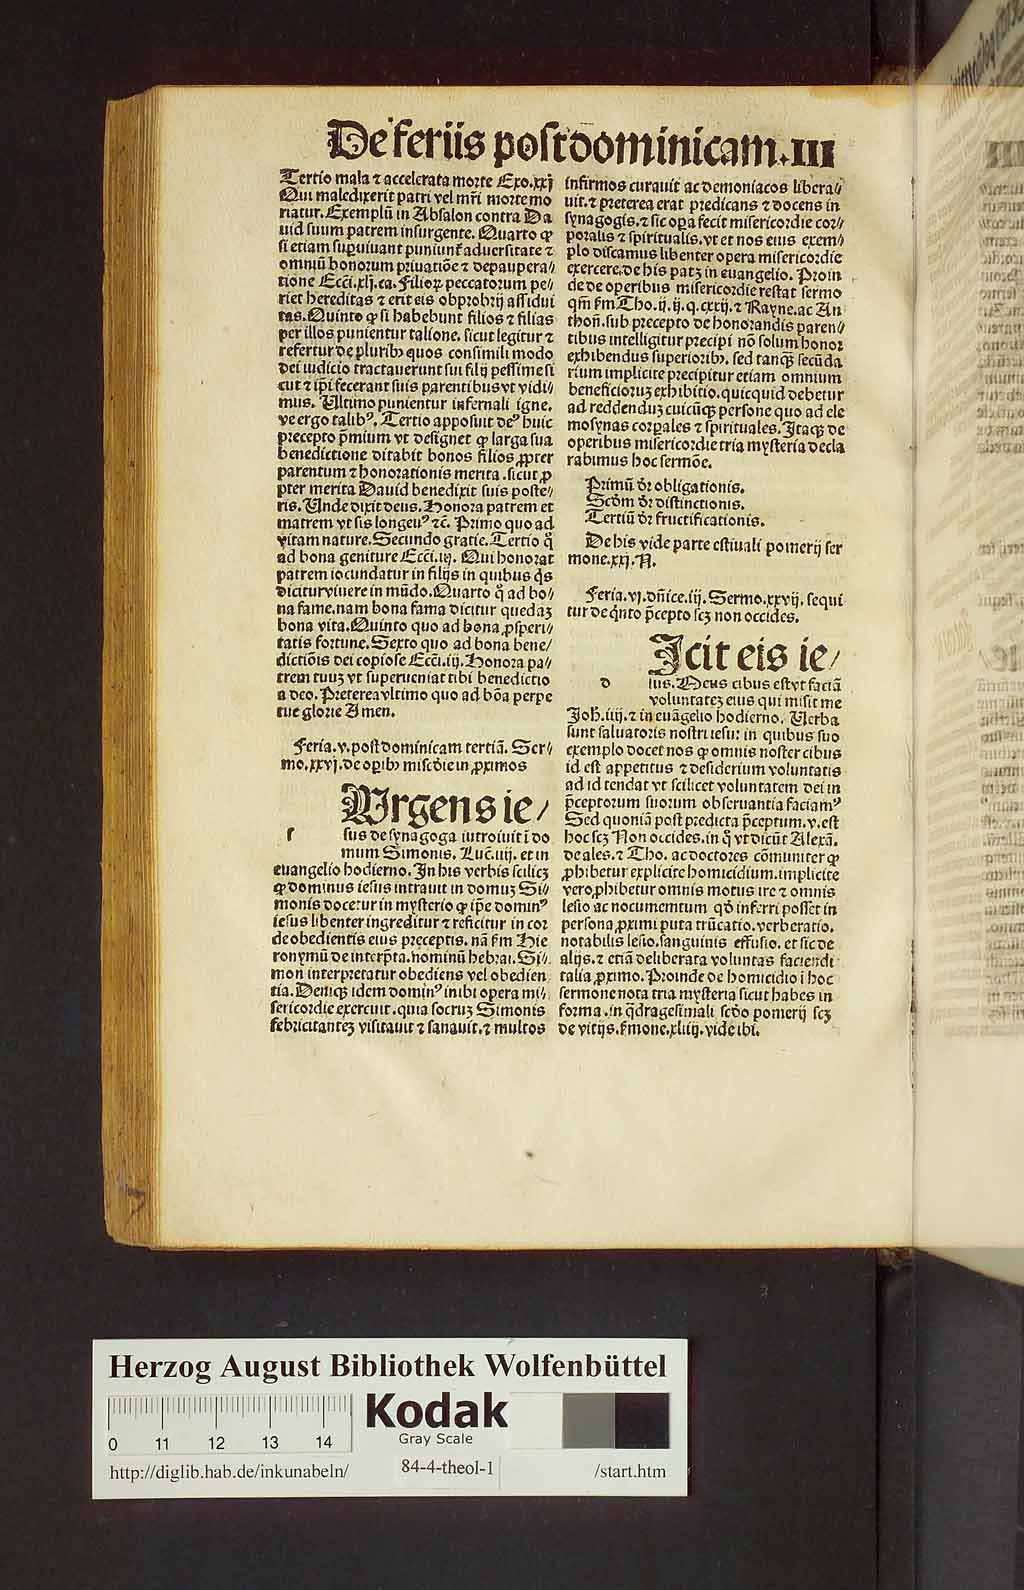 De feriis post dominicam.III
Tertio mala ⁊ accelerata morte Exo.xxj
Qui maledixerit patri vel mr̄i morte mo
riatur. Exemplū in Absalon contra Da
uid suum patrem insurgente. Quarto ꝙ
si etiam suꝑuiuant puniunt᷑ aduersitate ⁊
omniū honorum priuatiōe ⁊ depaupera⸗
tione Ecc̄i.xlj.ca. Filioꝝ peccatorum pe⸗
riet hereditas ⁊ erit eis obprobrij assidui
tas. Quinto ꝙ si habebunt filios ⁊ filias
per illos punientur talione. sicut legitur ⁊
refertur de pluribꝰ quos consimili modo
dei iudicio tractauerunt sui filij pessime si
cut ⁊ ip̄i fecerant suis parentibus vt vidi⸗
mus. Ultimo punientur infernali igne.
ve ergo talibꝰ. Tertio apposuit deꝰ huic
precepto p̄mium vt designet ꝙ larga sua
benedictione ditabit bonos filios ꝓpter
parentum ⁊ honorationis merita. sicut ꝓ
pter merita Dauid benedixit suis poste⸗
ris. Unde dixit deus. Honora patrem et
matrem vt sis longeuꝰ ⁊c̄. Primo quo ad
vitam nature. Secundo gratie. Tertio q̄
ad bona geniture Ecc̄i.iij. Qui honorat
patrem iocundatur in filijs in quibus q̇s
dicitur viuere in mūdo. Quarto q̄ ad bo⸗
na fame. nam bona fama dicitur quedaꝫ
bona vita. Quinto quo ad bona ꝓsperi⸗
tatis fortune. Sexto quo ad bona bene⸗
dictiōis dei copiose Ecc̄i.iij. Honora pa⸗
trem tuuꝫ vt superueniat tibi benedictio
a deo. Preterea vltimo quo ad bōa perpe
tue glorie Amen.
Feria.v. post dominicam tertiā. Ser⸗
mo.xxvj.de oꝑibꝰ misc̄die in ꝓximos
Urgens ie⸗
s sus de synagoga introiuit ī do
mum Simonis. Luc̄.iiij. et in
euangelio hodierno. In his verbis scilicꝫ
ꝙ dominus iesus intrauit in domuꝫ Si⸗
monis docetur in mysterio ꝙ ip̄e dominꝰ
iesus libenter ingreditur ⁊ reficitur in cor
de obedientis eius preceptis. nā ẜm Hie
ronymū de interp̄ta. nominū hebrai. Si⸗
mon interpretatur obediens vel obedien
tia. Deniqꝫ idem dominꝰ inibi opera mi⸗
sericordie exercuit. quia socruꝫ Simonis
febricitanteꝫ visitauit ⁊ sanauit. ⁊ multos
infirmos curauit ac demoniacos libera⸗
uit. ⁊ preterea erat predicans ⁊ docens in
synagogis. ⁊ sic oꝑa fecit misericordie cor⸗
poralis ⁊ spiritualis. vt et nos eius exem⸗
plo discamus libenter opera misericordie
exercere. de his patꝫ in euangelio. Proin
de de operibus misericordie restat sermo
qm̄ ẜm Tho.ij.ij.q.cxxij. ⁊ Rayne. ac An
thoñ. sub precepto de honorandis paren⸗
tibus intelligitur precipi nō solum honor
exhibendus superioribꝰ, sed tanqꝫ secūda
rium implicite precipitur etiam omnium
beneficioruꝫ exhibitio. quicquid debetur
ad reddenduꝫ cuicūqꝫ persone quo ad ele
mosynas corꝑales ⁊ spirituales. Itaqꝫ de
operibus misericordie tria mysteria decla
rabimus hoc sermōe.
Primū dr̄ obligationis.
Scd̄m dr̄ distinctionis.
Tertiū dr̄ fructificationis.
De his vide parte estiuali pomerij ser
mone.xxj.A.
Feria.vj.dn̄ice.iij. Sermo.xxvij. sequi
tur de q̇nto p̄cepto scꝫ non occides.
Icit eis ie⸗
d sus. Meus cibus est vt faciā
voluntateꝫ eius qui misit me
Joh̄.iiij. ⁊ in euāgelio hodierno. Uerba
sunt saluatoris nostri iesu: in quibus suo
exemplo docet nos ꝙ omnis noster cibus
id est appetitus ⁊ desiderium voluntatis
ad id tendat vt scilicet voluntatem dei in
p̄ceptorum suorum obseruantia faciamꝰ
Sed quoniā post predicta p̄ceptum.v. est
hoc scꝫ Non occides. in q̄ vt dicūt Alexā.
de ales. ⁊ Tho. ac doctores cōmuniter ꝙ
ꝓhibetur explicite homicidium. implicite
vero ꝓhibetur omnis motus ire ⁊ omnis
lesio ac nocumemtum qd̄ inferri posset in
persona ꝓximi puta trūcatio. verberatio.
notabilis lesio. sanguinis effusio. et sic de
alijs. ⁊ etiā deliberata voluntas faciendi
talia ꝓximo. Proinde de homicidio ī hoc
sermone nota tria mysteria sicut habes in
forma. in q̄dragesimali scd̄o pomerij scꝫ
de vitijs. ẜmone.xliiij. vide ibi.
Herzog August Bibliothek Wolfenbüttel
0 11 12 13 14
Kodak
Gray Scale
http://diglib.hab.de/inkunabeln/ 84-4-theol-1 /start.htm